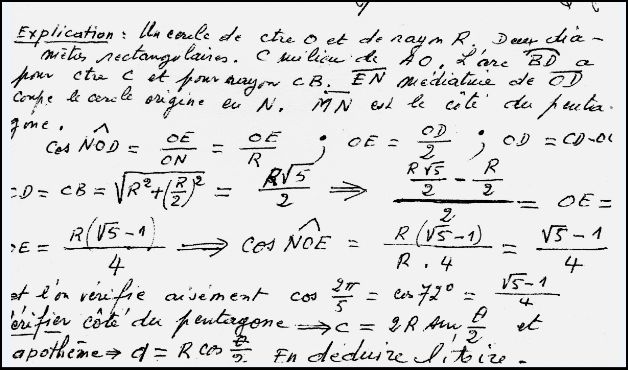 Explication : Un cercle de ctre O et de rayon R. Deux dia-
mètres rectangulaires. C milieu de AO. L'arc BD a
pour ctre C et pour rayon CB. EN médiatrice de OD
coupe le cercle origine en N. MN est le côté du penta-
gone.
cos NOD = OE/ON = OE/R ; OE = OD/2 ; OD = CD-OC
CD = CB = √(R²+(R/2)²) = R√5/2 ⟹ (R√5/2 - R/2)/2 = OE =
OE = R(√5-1)/4 ⟹ cos NOE = R(√5-1)/R.4 = √5-1/4
et l'on vérifie aisément cos 2π/5 = cos 72° = √5-1/4
Vérifier côté du pentagone ⟹ c = 2R sin θ/2 et
apothème ⟹ a = R cos θ/2. En déduire l'aire.